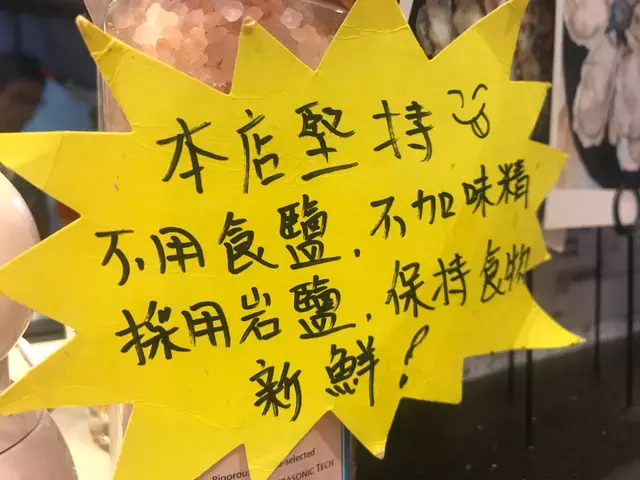 本店堅持
不用食鹽.不加味精
採用岩鹽.保持食物
新鮮!
-selected
RASONIC TECH